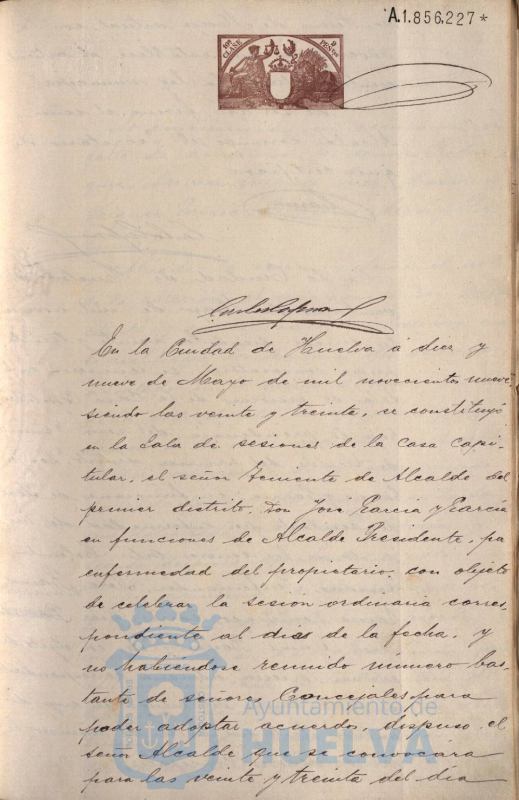 A.1.856.227*
10ª CLASE
2 PESETAS
En la Ciudad de Huelva á diez y
nueve de Mayo de mil novecientos nueve
siendo las veinte y treinta, se constituyó
en la Sala de sesiones de la Casa Capi-
tular, el señor Teniente de Alcalde del
primer distrito, Don José Garcia y Garcia
en funciones de Alcalde Presidente, por
enfermedad del propietario, con objeto
de celebrar la sesion ordinaria corres-
pondiente al dia de la fecha, y
no habiéndose reunido número bas-
tante de señores Concejales para
poder adoptar acuerdos, dispuso el
señor Alcalde que se convocára
para las veinte y treinta del dia
Ayuntamiento de
HUELVA